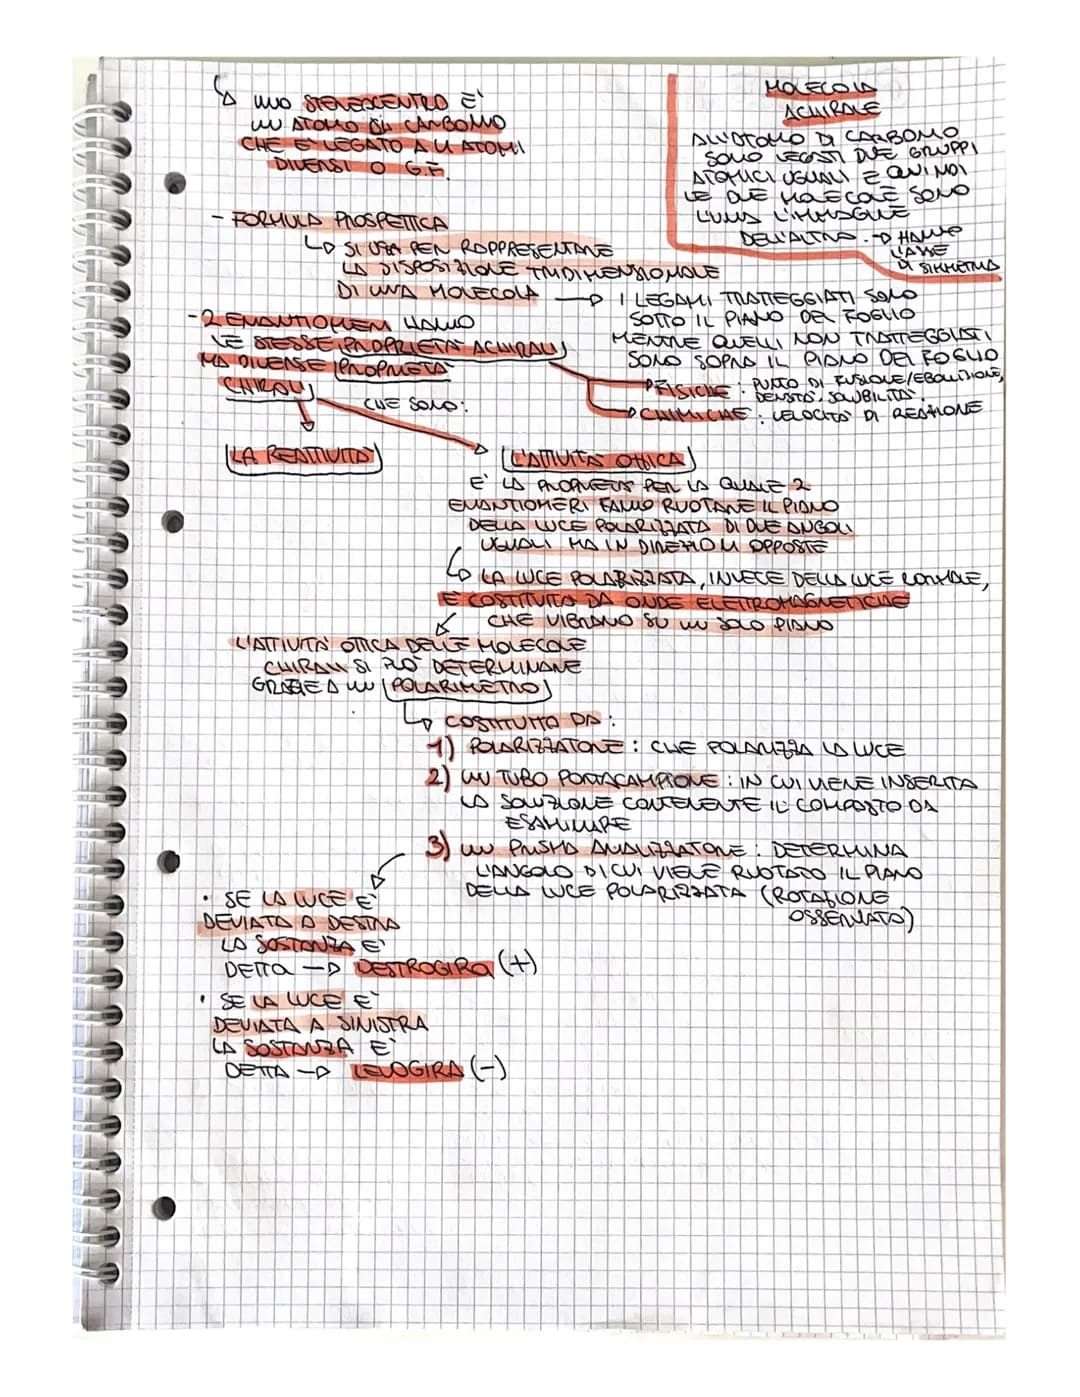 UNO STEREOCENTRO E'
UN ATOMO DI CARBONIO
CHE E' LEGATO A 4 ATOMI
DIVERSI O G.F.
MOLECOLA
ACHIRALE
ALL'ATOMO DI CARBONIO
SONO LEGATI DUE GRUPPI
ATOMICI UGUALI E QUINDI
LE DUE MOLECOLE SONO
L'UNA L'IMMAGINE
DELL'ALTRA. → HANNO
L'ASSE
DI SIMMETRIA
- FORMULA PROSPETTICA
↳ SI USA PER RAPPRESENTARE
LA DISPOSIZIONE TRIDIMENSIONALE
DI UNA MOLECOLA → I LEGAMI TRATTEGGIATI SONO
SOTTO IL PIANO DEL FOGLIO
MENTRE QUELLI NON TRATTEGGIATI
SONO SOPRA IL PIANO DEL FOGLIO
- 2 ENANTIOMERI HANNO
LE STESSE PROPRIETA' ACHIRALI
MA DIVERSE PROPRIETA'
CHIRALI
→ FISICHE : PUNTO DI FUSIONE/EBOLLIZIONE,
DENSITA', SOLUBILITA'.
→ CHIMICHE : VELOCITA' DI REAZIONE
CHE SONO:
LA REATTIVITA'
L'ATTIVITA' OTTICA
E' LA PROPRIETA' PER LA QUALE 2
ENANTIOMERI FANNO RUOTARE IL PIANO
DELLA LUCE POLARIZZATA DI DUE ANGOLI
UGUALI MA IN DIREZIONI OPPOSTE
↳ LA LUCE POLARIZZATA, INVECE DELLA LUCE NORMALE,
E' COSTITUITA DA ONDE ELETTROMAGNETICHE
CHE VIBRANO SU UN SOLO PIANO
L'ATTIVITA' OTTICA DELLE MOLECOLE
CHIRALI SI PUO' DETERMINARE
GRAZIE A UN POLARIMETRO
↳ COSTITUITO DA :
1) POLARIZZATORE : CHE POLARIZZA LA LUCE
2) UN TUBO PORTACAMPIONE : IN CUI VIENE INSERITA
LA SOLUZIONE CONTENENTE IL COMPOSTO DA
ESAMINARE
3) UN PRISMA ANALIZZATORE : DETERMINA
L'ANGOLO DI CUI VIENE RUOTATO IL PIANO
DELLA LUCE POLARIZZATA (ROTAZIONE
OSSERVATA)
• SE LA LUCE E'
DEVIATA A DESTRA
LA SOSTANZA E'
DETTA → DESTROGIRA (+)
• SE LA LUCE E'
DEVIATA A SINISTRA
LA SOSTANZA E'
DETTA → LEVOGIRA (-)